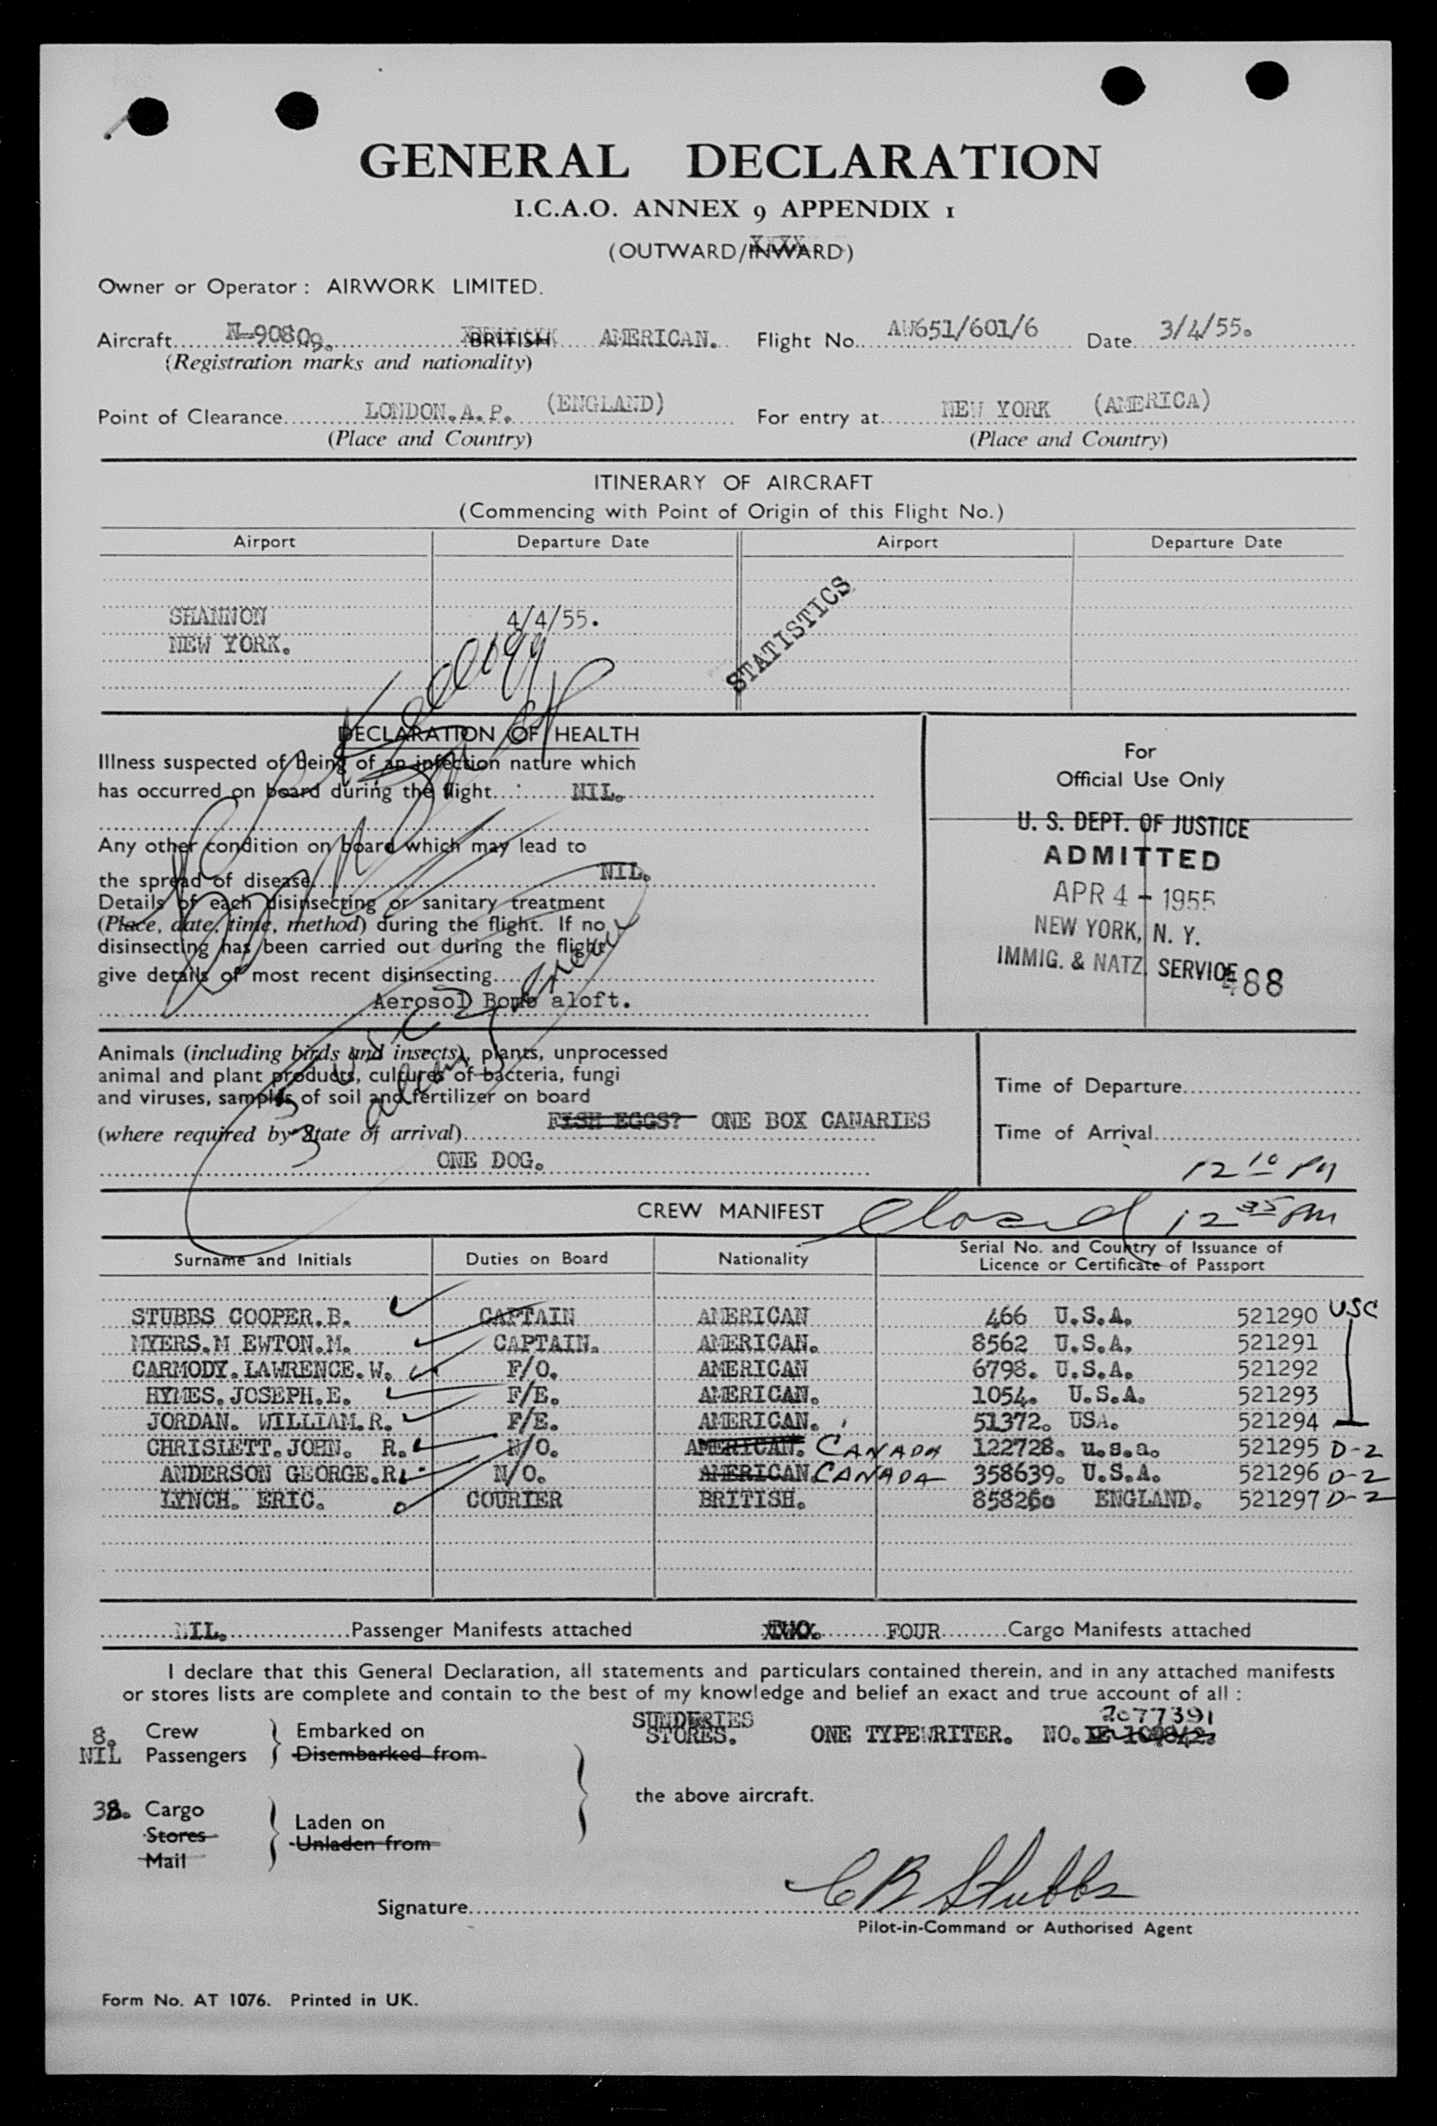 GENERAL DECLARATION
I.C.A.O. ANNEX 9 APPENDIX 1
(OUTWARD/INWARD)
Owner or Operator : AIRWORK LIMITED.
Aircraft N-90809. BRITISH AMERICAN. Flight No. AW651/601/6 Date 3/4/55.
(Registration marks and nationality)
Point of Clearance LONDON.A.P. (ENGLAND) For entry at NEW YORK (AMERICA)
(Place and Country) (Place and Country)
ITINERARY OF AIRCRAFT
(Commencing with Point of Origin of this Flight No.)
Airport Departure Date Airport Departure Date
SHANNON 4/4/55.
NEW YORK.
STATISTICS
Kellogg
DECLARATION OF HEALTH
Illness suspected of being of an infection nature which
has occurred on board during the flight NIL.
Any other condition on board which may lead to
the spread of disease NIL.
Details of each disinsecting or sanitary treatment
(Place, date, time, method) during the flight. If no
disinsecting has been carried out during the flight
give details of most recent disinsecting
Aerosol Bomb aloft.
For
Official Use Only
U. S. DEPT. OF JUSTICE
ADMITTED
APR 4 - 1955
NEW YORK, N. Y.
IMMIG. & NATZ SERVICE
488
5 USC crew
3 alien
Animals (including birds and insects), plants, unprocessed
animal and plant products, cultures of bacteria, fungi
and viruses, samples of soil and fertilizer on board
(where required by State of arrival) FISH EGGS? ONE BOX CANARIES
ONE DOG.
Time of Departure
Time of Arrival
12 10 PM
CREW MANIFEST Closed 12 35 PM
Surname and Initials Duties on Board Nationality Serial No. and Country of Issuance of
Licence or Certificate of Passport
STUBBS COOPER.B. CAPTAIN AMERICAN 466 U.S.A. 521290 USC
MYERS.M EWTON.M. CAPTAIN. AMERICAN. 8562 U.S.A. 521291
CARMODY.LAWRENCE.W. F/O. AMERICAN 6798. U.S.A. 521292
HYMES.JOSEPH.E. F/E. AMERICAN. 1054. U.S.A. 521293
JORDAN. WILLIAM.R. F/E. AMERICAN. 51372. USA. 521294
CHRISLETT.JOHN. R. N/O. AMERICAN. CANADA 122728. u.s.a. 521295 D-2
ANDERSON GEORGE.R. N/O. AMERICAN. CANADA 358639. U.S.A. 521296 D-2
LYNCH. ERIC. COURIER BRITISH. 858260 ENGLAND. 521297 D-2
NIL. Passenger Manifests attached FOUR Cargo Manifests attached
I declare that this General Declaration, all statements and particulars contained therein, and in any attached manifests
or stores lists are complete and contain to the best of my knowledge and belief an exact and true account of all :
8. Crew Embarked on SUNDERIES 2077391
NIL Passengers Disembarked from STORES. ONE TYPEWRITER. NO.
the above aircraft.
38. Cargo Laden on
Stores Unladen from
Mail
Signature C B Stubbs
Pilot-in-Command or Authorised Agent
Form No. AT 1076. Printed in UK.